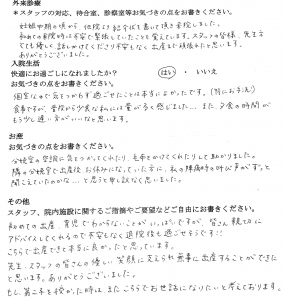 外来診療
＊スタッフの対応、待合室、診察室等お気づきの点をお書きください。
妊娠中期の頃から、他院より紹介状を書いて頂き来院しました。
初めての来院時は不安で緊張していたことを覚えています。スタッフの皆様、先生方
とても優しく話しかけてくださり不安もなく出産まで頑張れたと思います。
ありがとうございました。
入院生活
快適にお過ごしになれましたか？ はい ・ いいえ
お気づきの点をお書きください。
個室なので気をつかわず過ごせたことは本当によかったです。
食事ですが、普段から少食な私には量が多く感じました… また、夕食の時間が
もう少し遅い方がいいなと思います。
お産
お気づきの点をお書きください。
分娩室の室温に気をつかってくれたり、毛布をかけてくれたりして助かりました。
隣の分娩室で出産後、お休みになっていた方に、私の陣痛時の叫び声がずっと
聞こえていたのかな…と思うと申し訳なく思いました。
その他
スタッフ、院内施設に関するご指摘やご要望などご自由にお書きください。
初めての出産、育児でわからないことがいっぱいですが、皆さん親切に
アドバイスしてくれるので不安もなく退院後も過ごせそうです!!
こちらで出産できて本当に良かったと思っています。
先生、スタッフの皆さんの優しい笑顔に支えられ無事に出産することができた
と思います。ありがとうございました。
もし、第二子を授かった時は、またこちらでお世話になりたいと考えております。